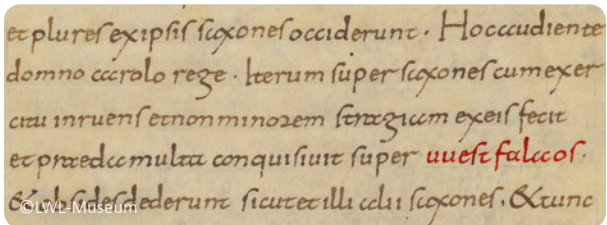 et plures ex ipsis saxones occiderunt. Hoc audiente
domno carolo rege. Iterum super saxones cum exer
citu inruens et non minorem stragiam ex eis fecit
et praeda multa conquisiuit super uuestfalaos.
& obsides dederunt sicut et illi alii saxones. & tunc
©LWL-Museum